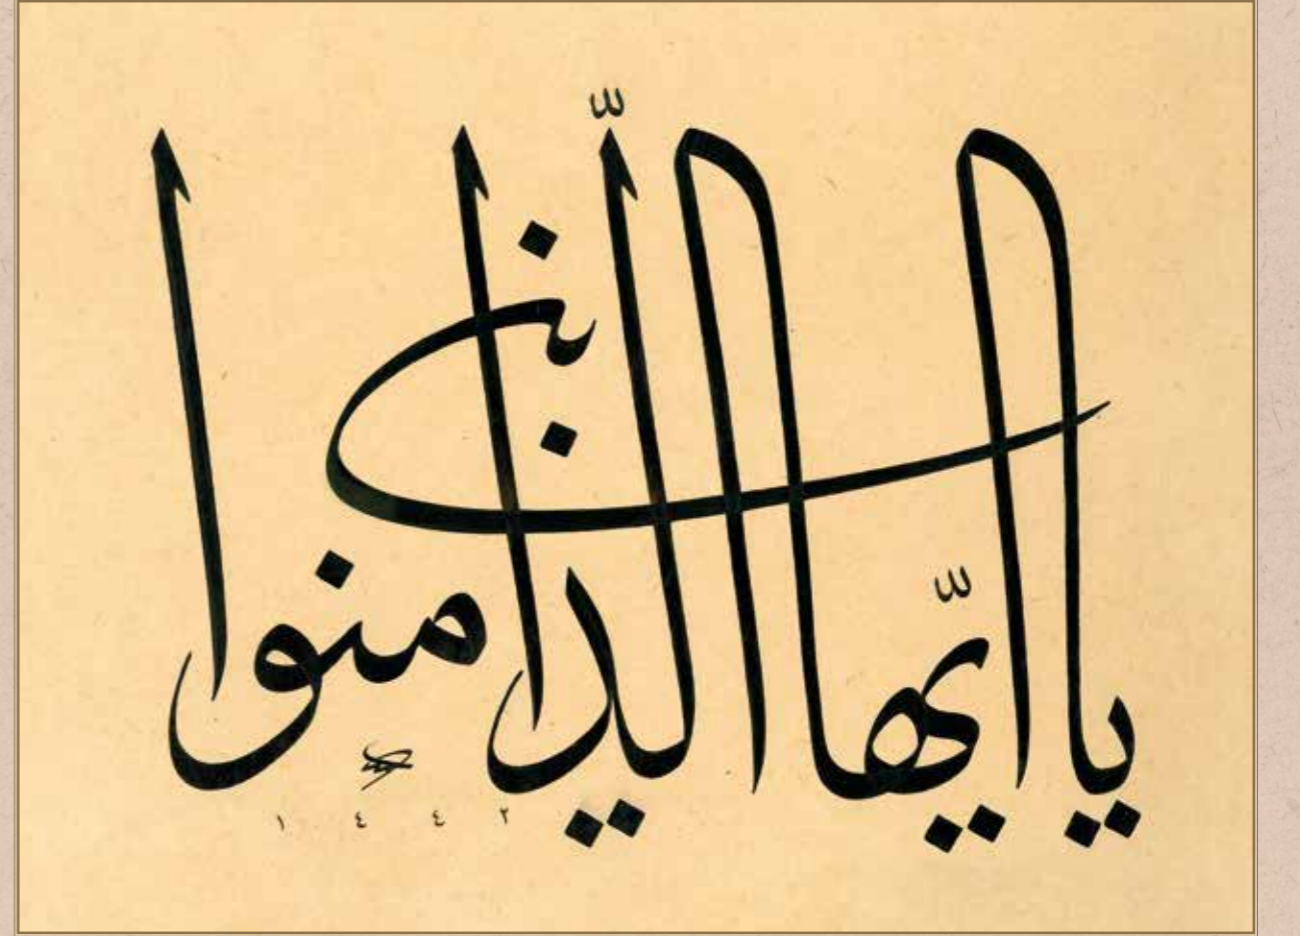 يا أيّها الّذين امنوا
١٤٤٢